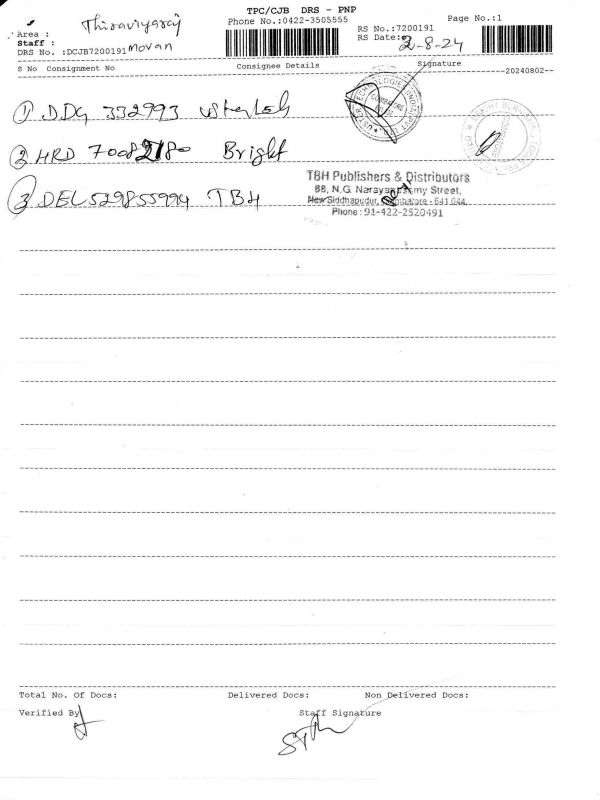 TPC/CJB DRS - PNP
Thiraviyaraj
Phone No.:0422-3505555
Page No.:1
Area :
RS No.:7200191
Staff : Movan
RS Date: 2-8-24
DRS No. :DCJB7200191
S No Consignment No Consignee Details Signature
--20240802--
1 DDG 332993
2 HRD 70082180 Bright
3 DEL529855994 TBH
TBH Publishers & Distributors
68, N.G. Narayanasamy Street,
New Siddhapudur, Coimbatore - 641 044.
Phone: 91-422-2520491
Total No. Of Docs: Delivered Docs: Non Delivered Docs:
Verified By Staff Signature